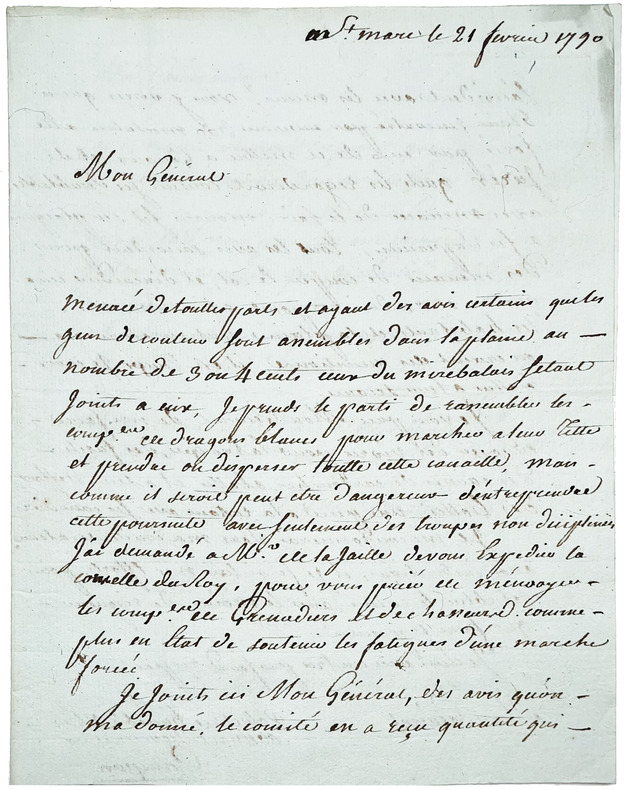 a St marc le 21 fevrier 1790
Mon Général
menacé detouttes parts et ayant des avis certains que les
gens decouleur sont assemblés dans la plaine au —
nombre de 3 ou 4 cents ceux du mirebalais setant
Joints a eux, Je prends le parti de rassembler les -
compies de dragons blancs pour marcher a leur Tette
et prendre ou disperser toutte cette canaille, mais -
comme il seroit peut etre dangereux d'entreprendre
cette poursuite avec seulement des troupes non disiplinées
J'ai demandé a Mr de la Jaille devous Expedier la
corvette du Roy, pour vous prier de m'envoyer -
les compies de Grenadiers et de chasseurs comme -
plus en Etat de soutenir les fatigues d'une marche
forcée.
Je Joints ici Mon Général, des avis qu'on -
ma donné, le comité en a reçu quantité qui —